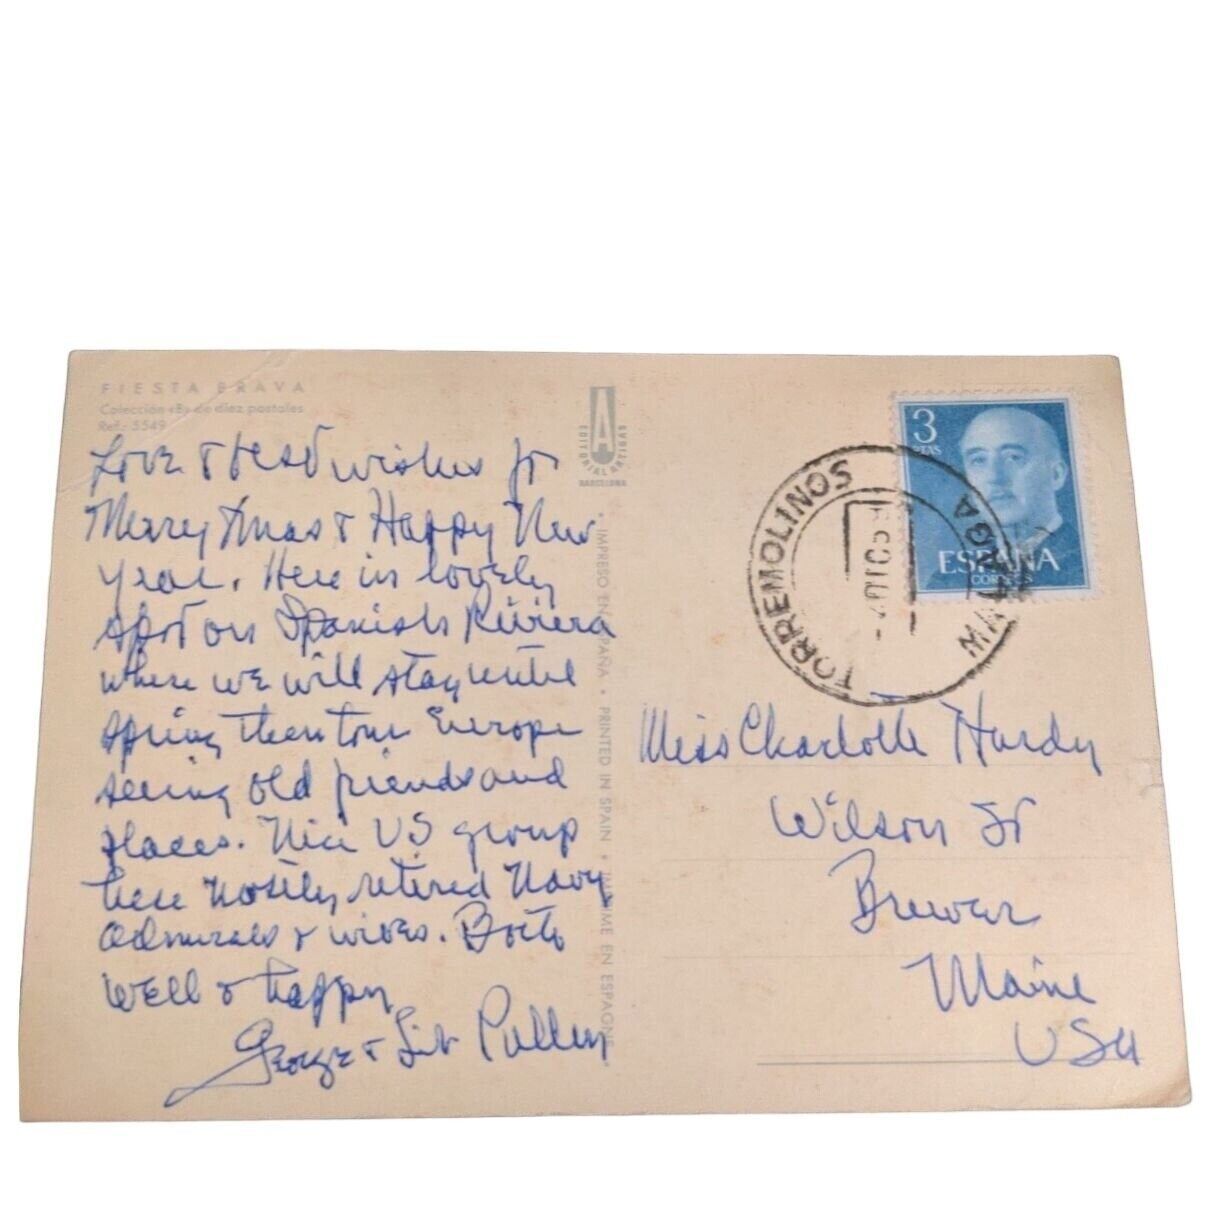 FIESTA BRAVA
Colección «B» de diez postales
Ref.- 5549
Love & best wishes for
Merry Xmas & Happy New
Year. Here in lovely
spot on Spanish Riviera
where we will stay until
spring then tour Europe
seeing old friends and
places. Nice US group
here mostly retired Navy
admirals & wives. Both
well & happy
George & Lib Pullen
A
EDITORIAL ARTIGAS
BARCELONA
· IMPRESO EN ESPAÑA · PRINTED IN SPAIN · IMPRIME EN ESPAGNE ·
3
PTAS
ESPAÑA
CORREOS
TORREMOLINOS
MALAGA
Miss Charlotte Hardy
Wilson St
Brewer
Maine
USA